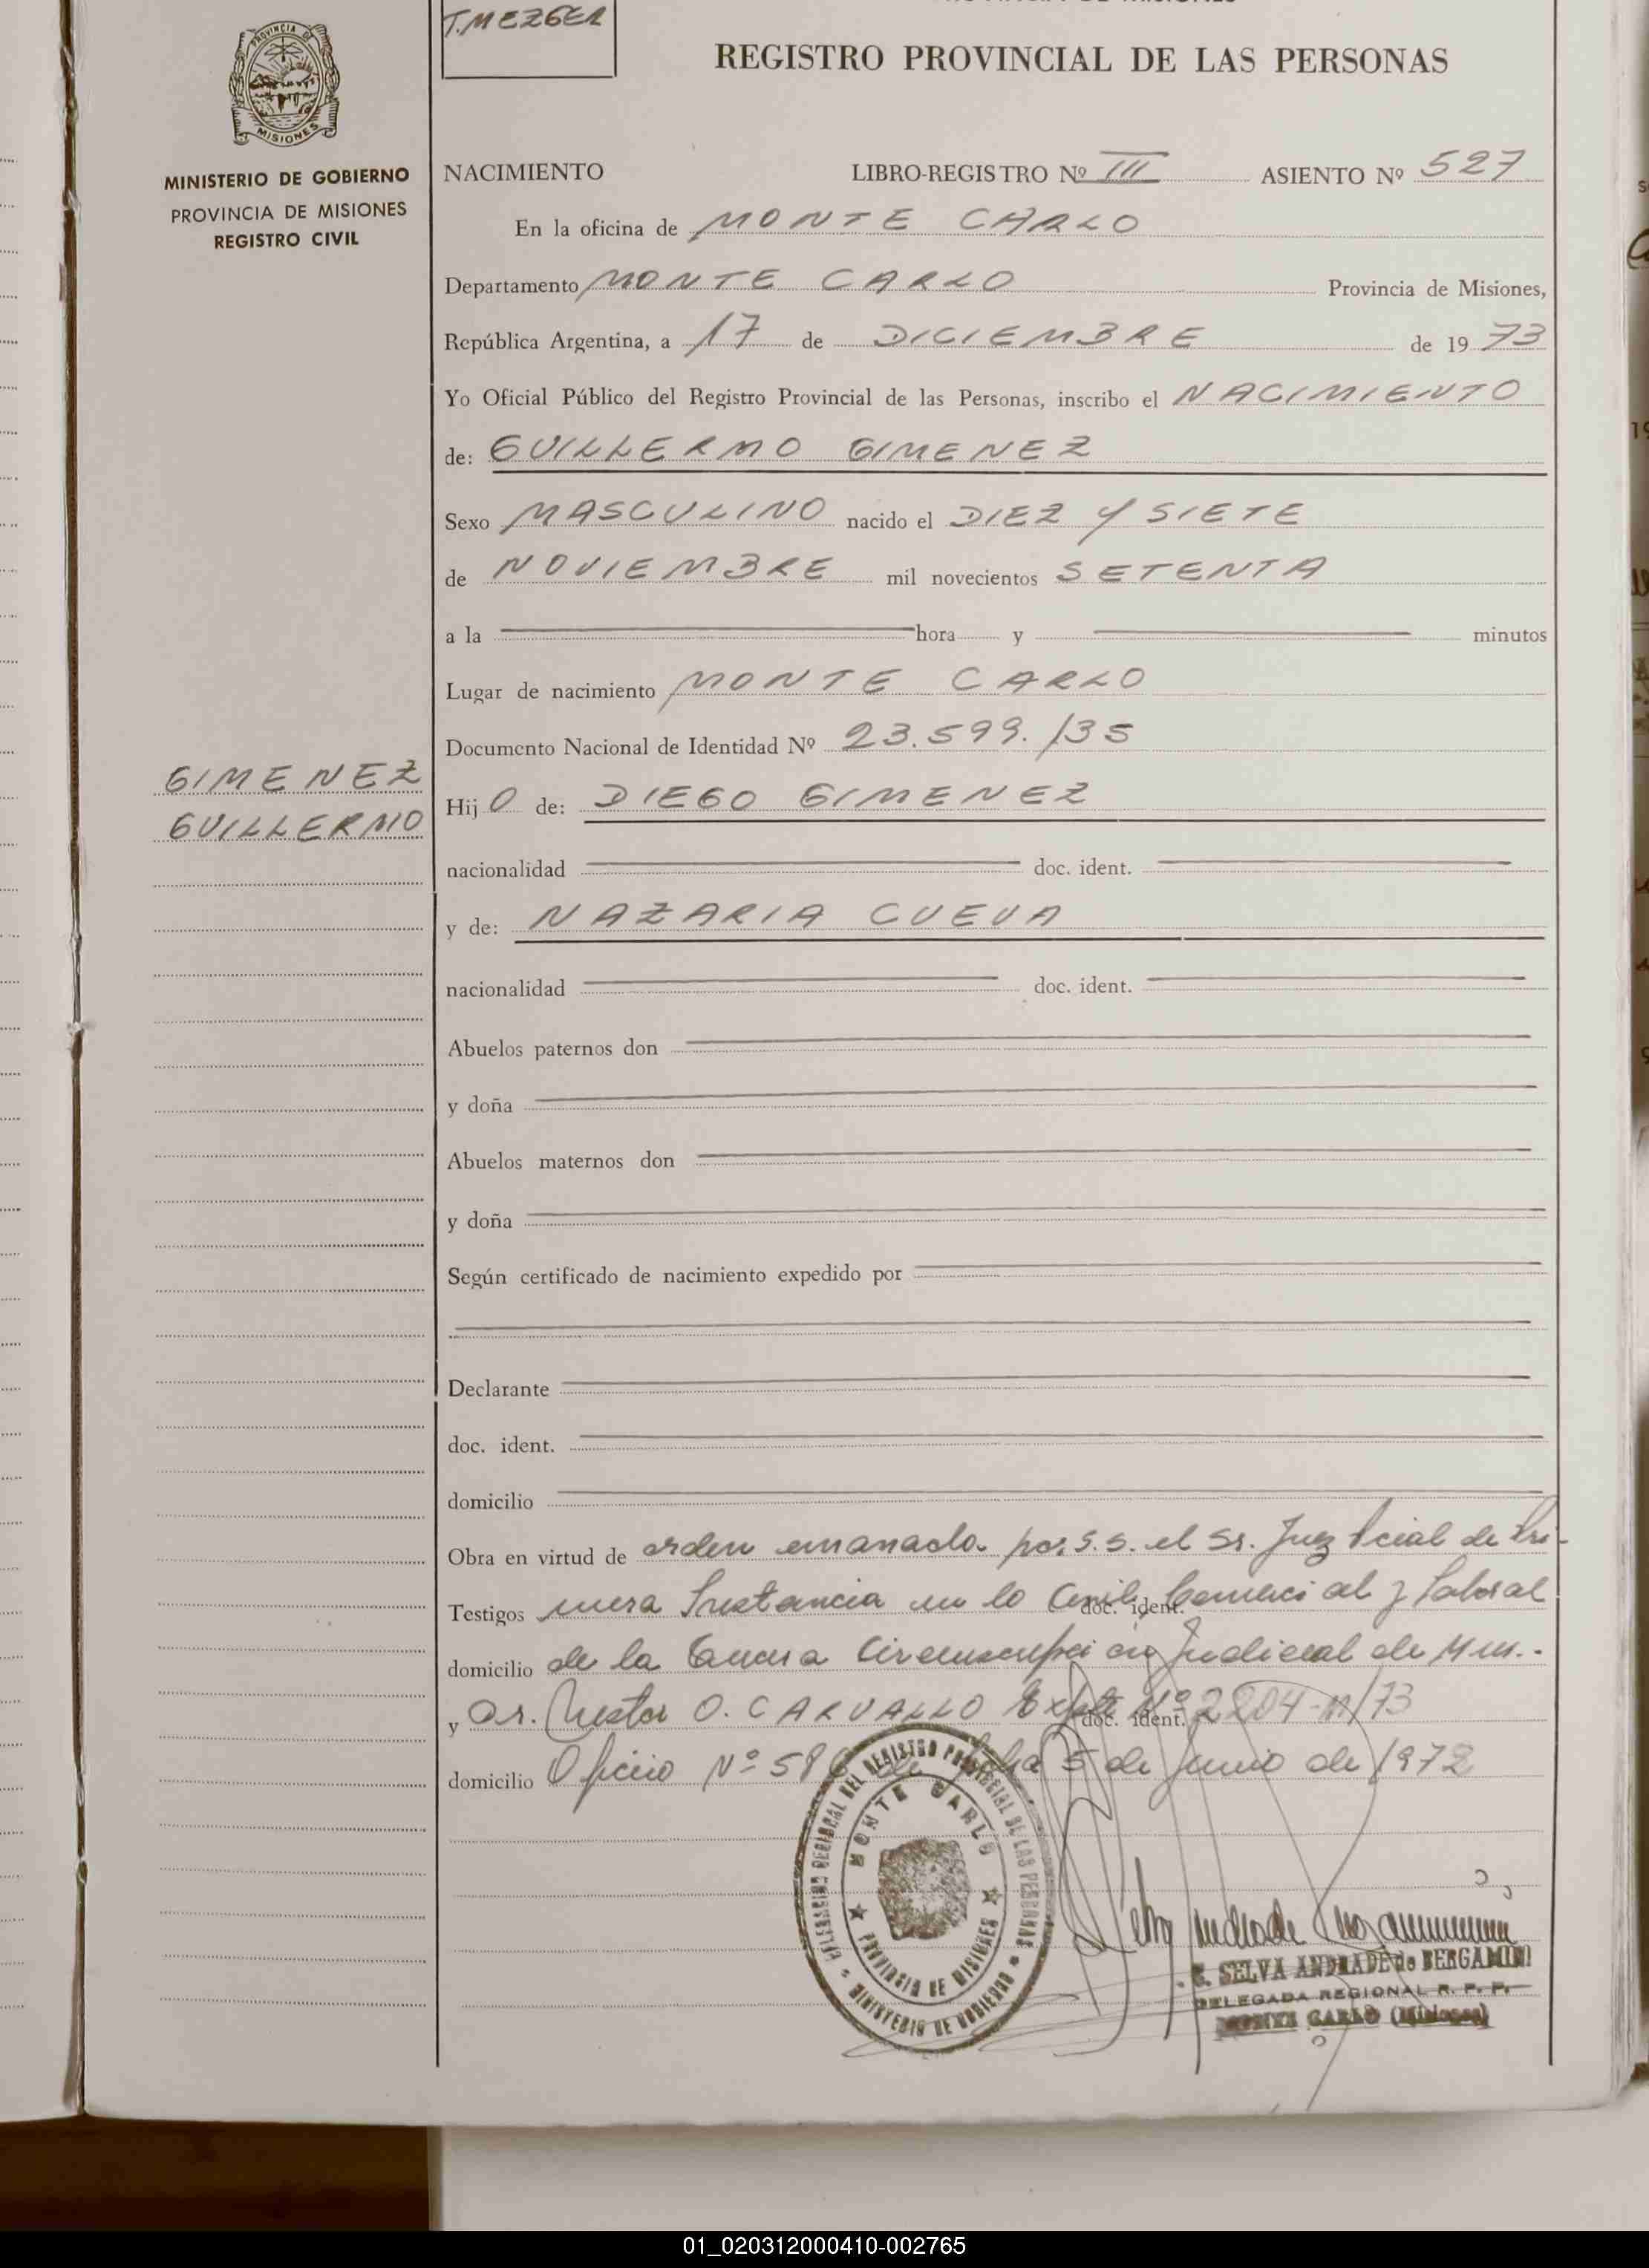 T. MEZGER
REGISTRO PROVINCIAL DE LAS PERSONAS
PROVINCIA DE
MISIONES
MINISTERIO DE GOBIERNO
PROVINCIA DE MISIONES
REGISTRO CIVIL
NACIMIENTO LIBRO-REGISTRO Nº III ASIENTO Nº 527
En la oficina de MONTE CARLO
Departamento MONTE CARLO Provincia de Misiones,
República Argentina, a 17 de DICIEMBRE de 1973
Yo Oficial Público del Registro Provincial de las Personas, inscribo el NACIMIENTO
de: GUILLERMO GIMENEZ
Sexo MASCULINO nacido el DIEZ Y SIETE
de NOVIEMBRE mil novecientos SETENTA
a la hora y minutos
Lugar de nacimiento MONTE CARLO
Documento Nacional de Identidad Nº 23.599.135
GIMENEZ
GUILLERMO
Hijo de: DIEGO GIMENEZ
nacionalidad doc. ident.
y de: NAZARIA CUEVA
nacionalidad doc. ident.
Abuelos paternos don
y doña
Abuelos maternos don
y doña
Según certificado de nacimiento expedido por
Declarante
doc. ident.
domicilio
Obra en virtud de orden emanada por S.S. el Sr. Juez de Pri-
Testigos mera Instancia en lo Civil, Comercial y Laboral doc. ident.
domicilio de la Circunscripción Judicial de
y Dr. Nestor O. CARVALLO Expte Nº 2204-M/73 doc. ident.
domicilio Oficio Nº 586 de fecha 5 de Junio de 1972
DELEGACION REGIONAL DEL REGISTRO PROVINCIAL DE LAS PERSONAS
MONTE CARLO
PROVINCIA DE MISIONES
MINISTERIO DE GOBIERNO
SELVA ANDRADE de BERGAMINI
DELEGADA REGIONAL R. P. P.
MONTE CARLO (Misiones)
01_020312000410-002765